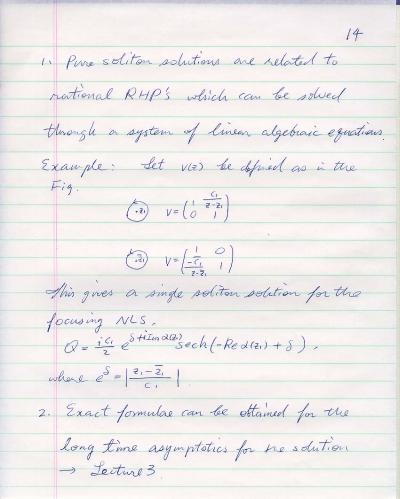 14
1. Pure soliton solutions are related to
rational RHP's which can be solved
through a system of linear algebraic equations.
Example: Let v(z) be defined as in the
Fig.
·z₁ V = ( 1 c₁/(z-z₁) ; 0 1 )
·z̄₁ V = ( 1 0 ; -c̄₁/(z-z̄₁) 1 )
This gives a single soliton solution for the
focusing NLS.
Q = i c₁/2 e^{δ+i Im α(z₁)} sech(-Re α(z₁) + δ),
where e^δ = | (z₁ - z̄₁)/c₁ |
2. Exact formulae can be obtained for the
long time asymptotics for the solution
→ Lecture 3